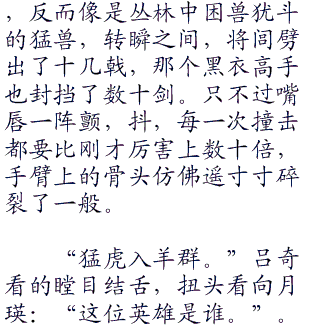 ，反而像是丛林中困兽犹斗
的猛兽，转瞬之间，将闾劈
出了十几戟，那个黑衣高手
也封挡了数十剑。只不过嘴
唇一阵颤，抖，每一次撞击
都要比刚才厉害上数十倍，
手臂上的骨头仿佛遥寸寸碎
裂了一般。
“猛虎入羊群。”吕奇
看的瞠目结舌，扭头看向月
瑛：“这位英雄是谁。”。